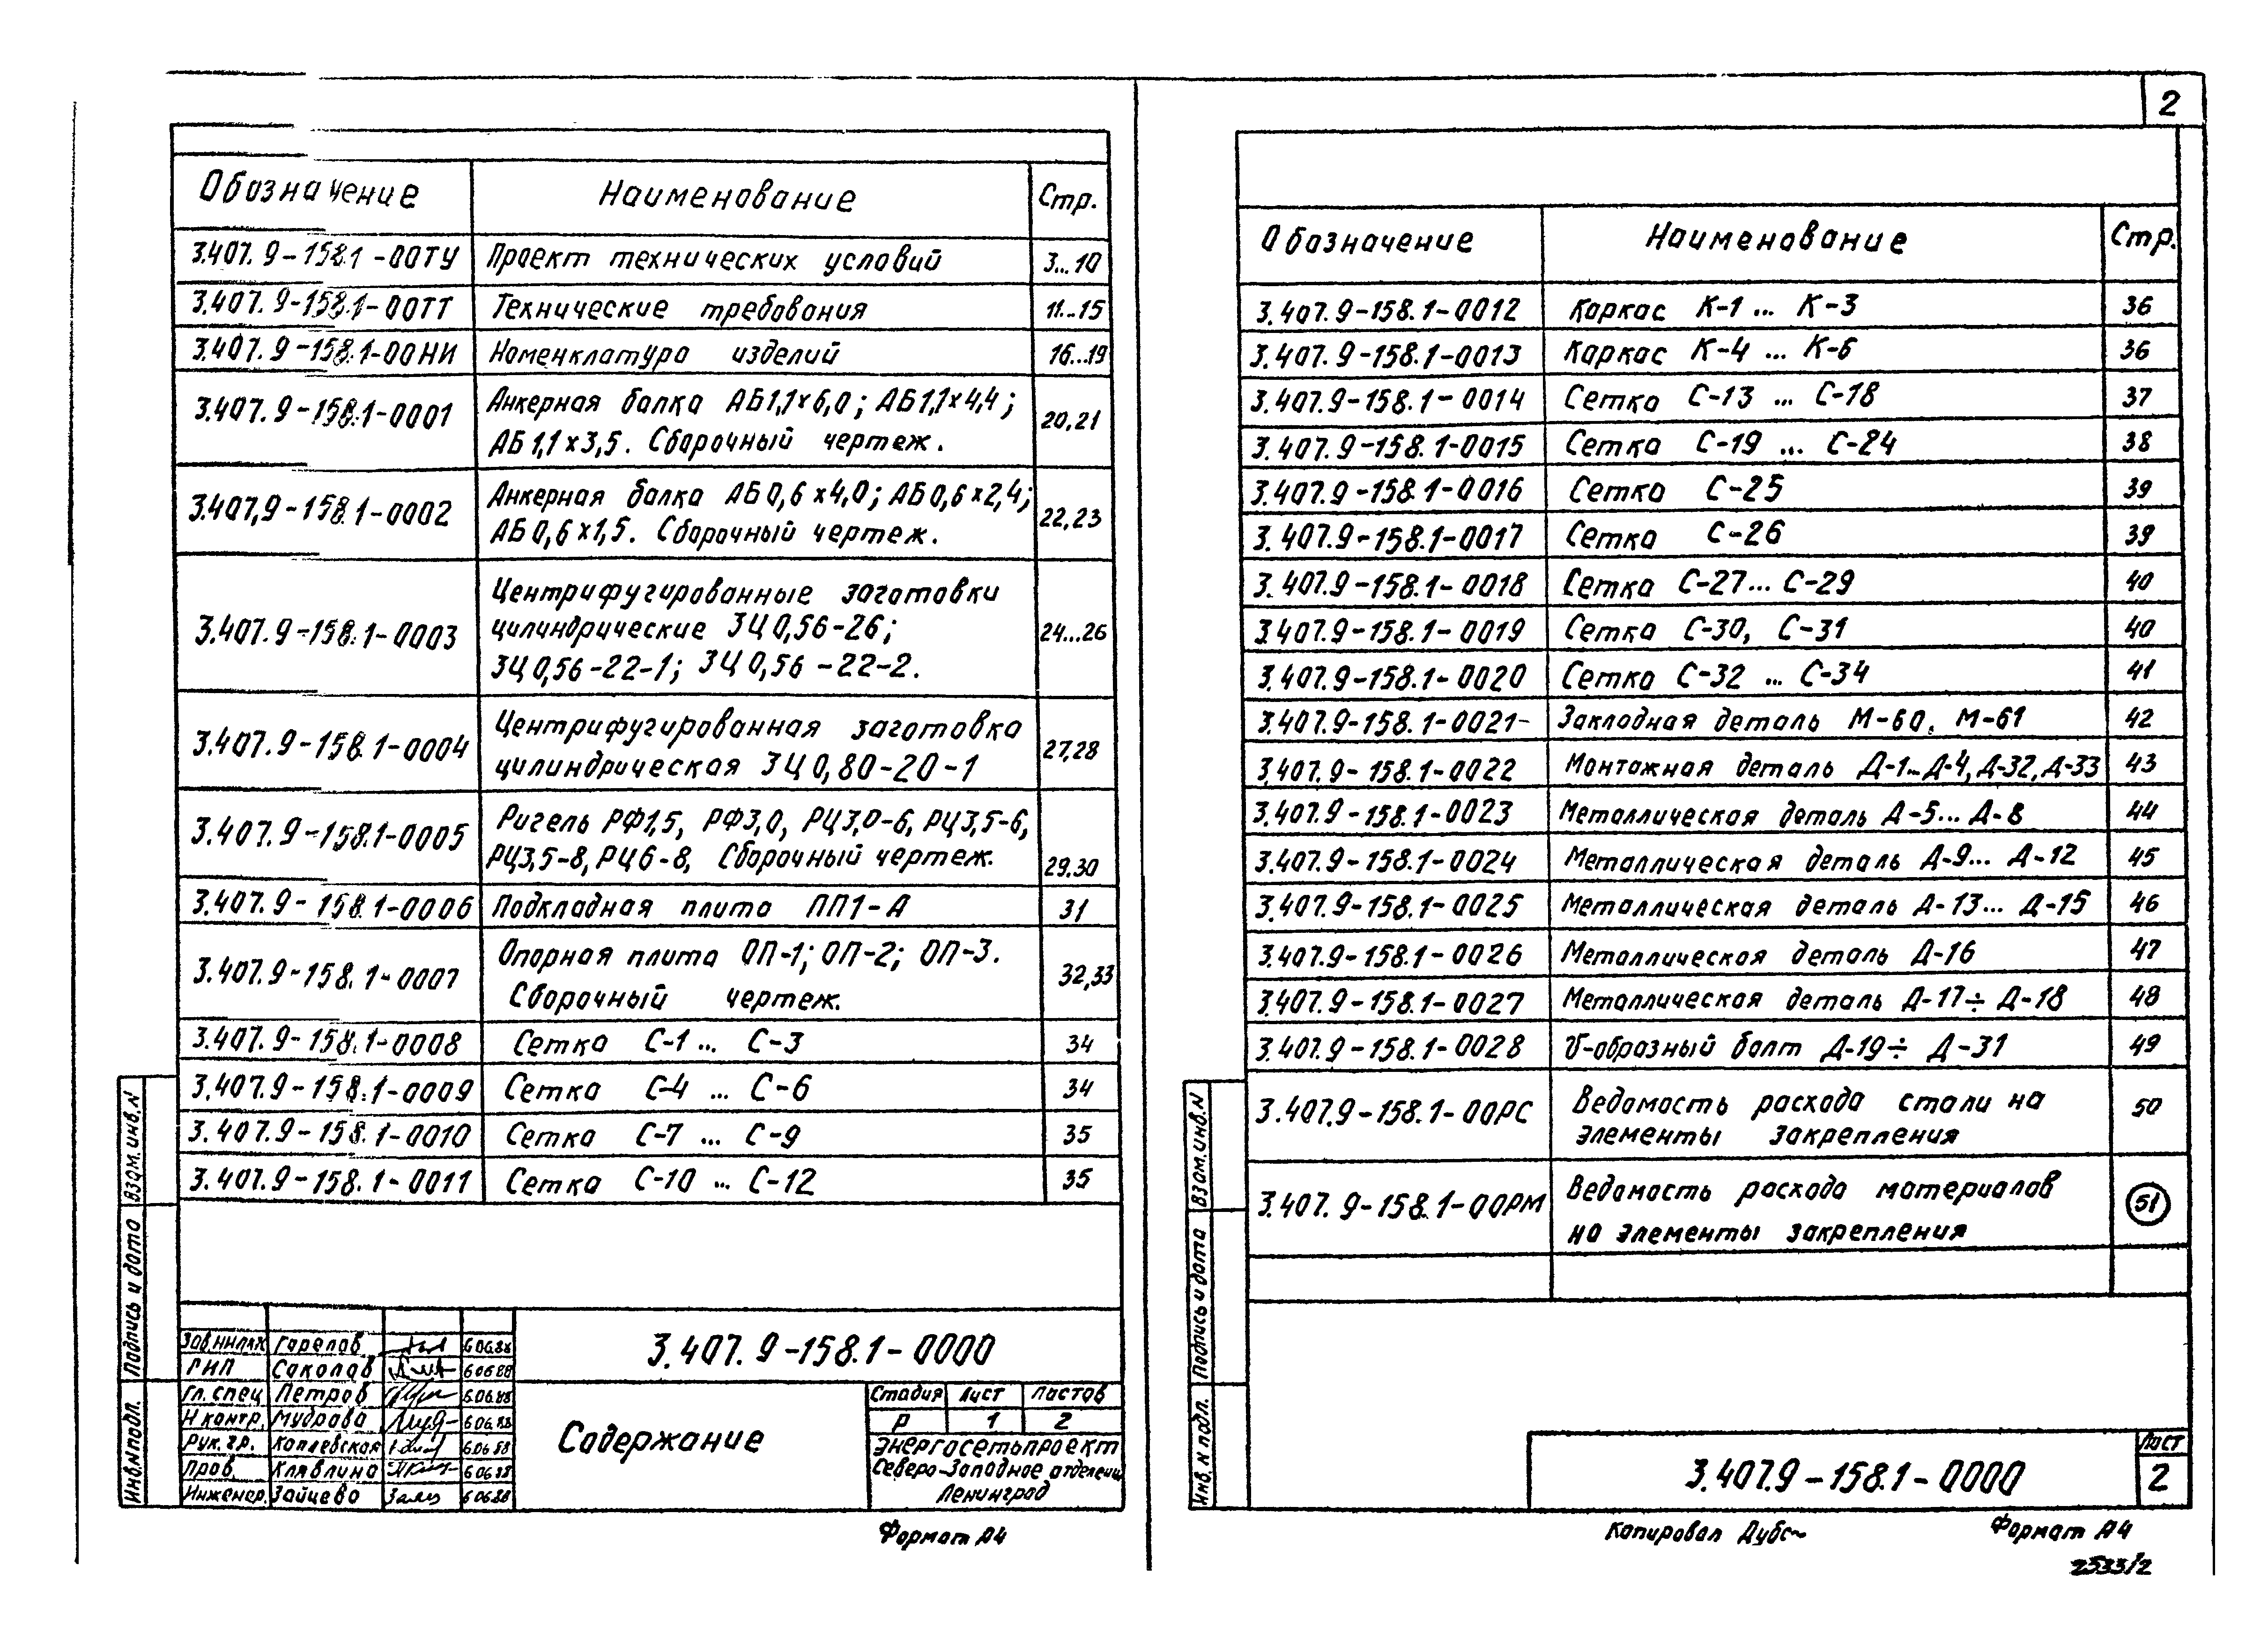 2
Обозначение Наименование Стр.
3.407.9-158.1-00ТУ Проект технических условий 3...10
3.407.9-158.1-00ТТ Технические требования 11...15
3.407.9-158.1-00НИ Номенклатура изделий 16...19
3.407.9-158.1-0001 Анкерная балка АБ1,1×6,0; АБ1,1×4,4;
АБ1,1×3,5. Сборочный чертеж. 20,21
3.407,9-158.1-0002 Анкерная балка АБ0,6×4,0; АБ0,6×2,4;
АБ0,6×1,5. Сборочный чертеж. 22,23
3.407.9-158.1-0003 Центрифугированные заготовки
цилиндрические 3Ц0,56-26;
3Ц0,56-22-1; 3Ц0,56-22-2. 24...26
3.407.9-158.1-0004 Центрифугированная заготовка
цилиндрическая 3Ц0,80-20-1 27,28
3.407.9-158.1-0005 Ригель РФ1,5, РФ3,0, РЦ3,0-6, РЦ3,5-6,
РЦ3,5-8, РЦ6-8, Сборочный чертеж. 29,30
3.407.9-158.1-0006 Подкладная плита ПП1-А 31
3.407.9-158.1-0007 Опорная плита ОП-1; ОП-2; ОП-3.
Сборочный чертеж. 32,33
3.407.9-158.1-0008 Сетка С-1 ... С-3 34
3.407.9-158.1-0009 Сетка С-4 ... С-6 34
3.407.9-158.1-0010 Сетка С-7 ... С-9 35
3.407.9-158.1-0011 Сетка С-10 ... С-12 35
Инв.N подл. Подпись и дата Взам.инв.N
3.407.9-158.1-0000
Зав.НИЛКЖ Горелов 6.06.88
ГИП Соколов 6.06.88
Гл.спец Петров 6.06.88
Н контр. Мудрова 6.06.88
Рук.гр. 6.06.88
Пров. Клявлина 6.06.88
Инженер. Зайцева 6.06.88
Содержание
Стадия Лист Листов
Р 1 2
Энергосетьпроект
Северо-Западное отделение
Ленинград
Формат А4
Обозначение Наименование Стр.
3.407.9-158.1-0012 Каркас К-1 ... К-3 36
3.407.9-158.1-0013 Каркас К-4 ... К-6 36
3.407.9-158.1-0014 Сетка С-13 ... С-18 37
3.407.9-158.1-0015 Сетка С-19 ... С-24 38
3.407.9-158.1-0016 Сетка С-25 39
3.407.9-158.1-0017 Сетка С-26 39
3.407.9-158.1-0018 Сетка С-27... С-29 40
3.407.9-158.1-0019 Сетка С-30, С-31 40
3.407.9-158.1-0020 Сетка С-32 ... С-34 41
3.407.9-158.1-0021- Закладная деталь М-60, М-61 42
3.407.9-158.1-0022 Монтажная деталь Д-1...Д-4, Д-32, Д-33 43
3.407.9-158.1-0023 Металлическая деталь Д-5... Д-8 44
3.407.9-158.1-0024 Металлическая деталь Д-9... Д-12 45
3.407.9-158.1-0025 Металлическая деталь Д-13... Д-15 46
3.407.9-158.1-0026 Металлическая деталь Д-16 47
3.407.9-158.1-0027 Металлическая деталь Д-17÷ Д-18 48
3.407.9-158.1-0028 U-образный болт Д-19÷ Д-31 49
3.407.9-158.1-00РС Ведомость расхода стали на
элементы закрепления 50
3.407.9-158.1-00РМ Ведомость расхода материалов
на элементы закрепления 51
Инв. N подл. Подпись и дата Взам.инв.N
3.407.9-158.1-0000
Лист
2
Копировал Формат А4
2533/2